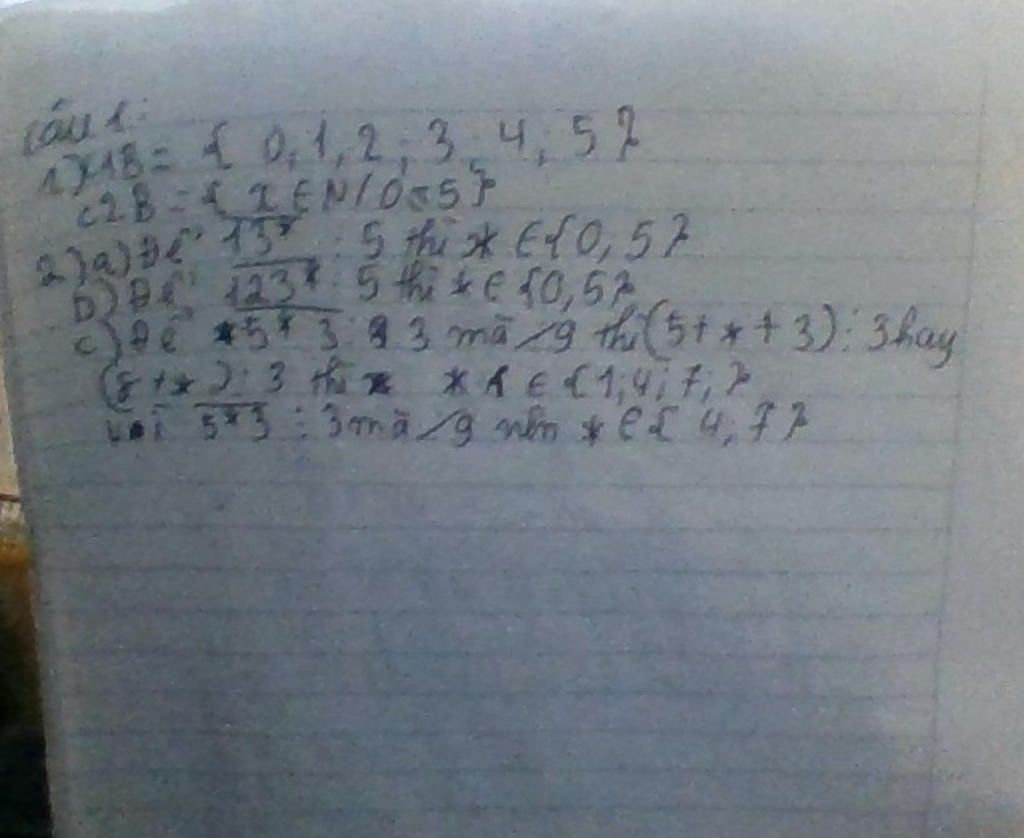 Câu 1:
1) C1B = { 0, 1, 2; 3; 4; 5}
C2B = { x ∈ N / 0 ≤ 5}
2) a) Để 13* ⋮ 5 thì * ∈ {0, 5}
b) Để 123* ⋮ 5 thì * ∈ {0, 5}
c) Để *5* 3 ⋮ 3 mà 9 thì (5 + * + 3) ⋮ 3 hay
(8 + *) ⋮ 3 thì * ∈ {1; 4; 7; }
Với 5*3 ⋮ 3 mà 9 nên * ∈ { 4; 7}